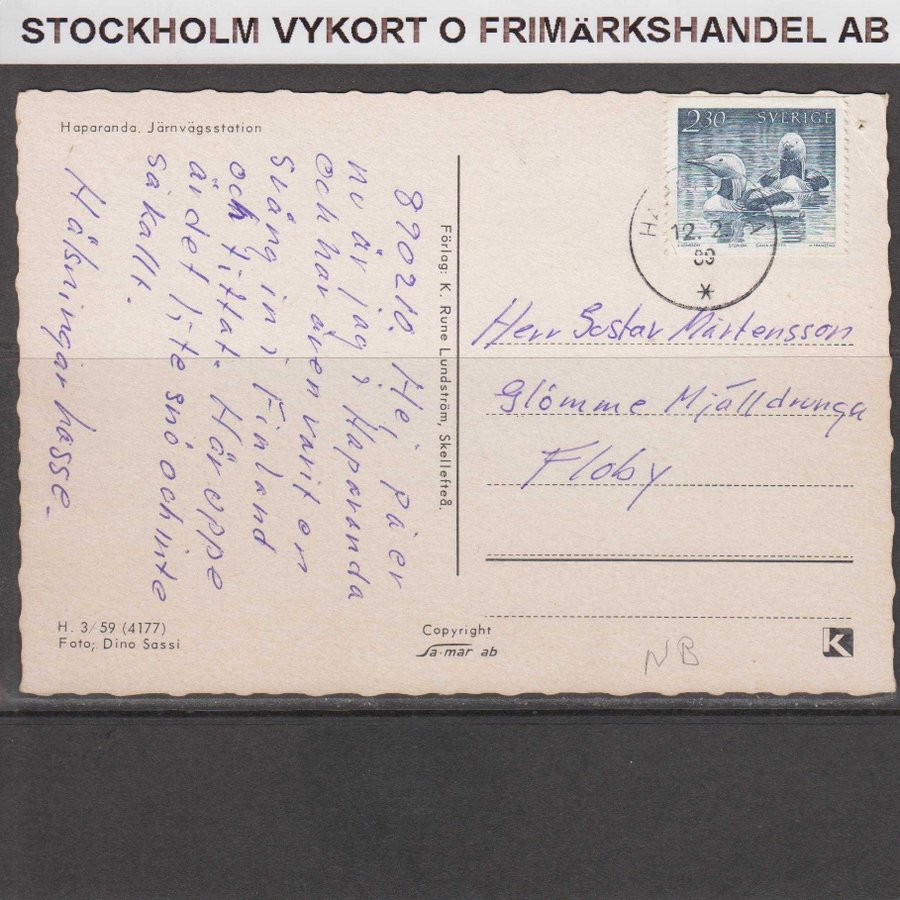 STOCKHOLM VYKORT O FRIMÄRKSHANDEL AB
Haparanda. Järnvägsstation
890210. Hej på er
nu är jag i Haparanda
och har även varit en
sväng in i Finland
och tittat. Här oppe
är det lite snö och inte
så kallt.
Hälsningar hasse.
Förlag: K. Rune Lundström, Skellefteå.
2.30 SVERIGE
12. 2
89
Herr Gostav Mårtensson
Glömme Mjälldrunga
Floby
H. 3/59 (4177)
Foto; Dino Sassi
Copyright
Sa-mar ab
NB
K